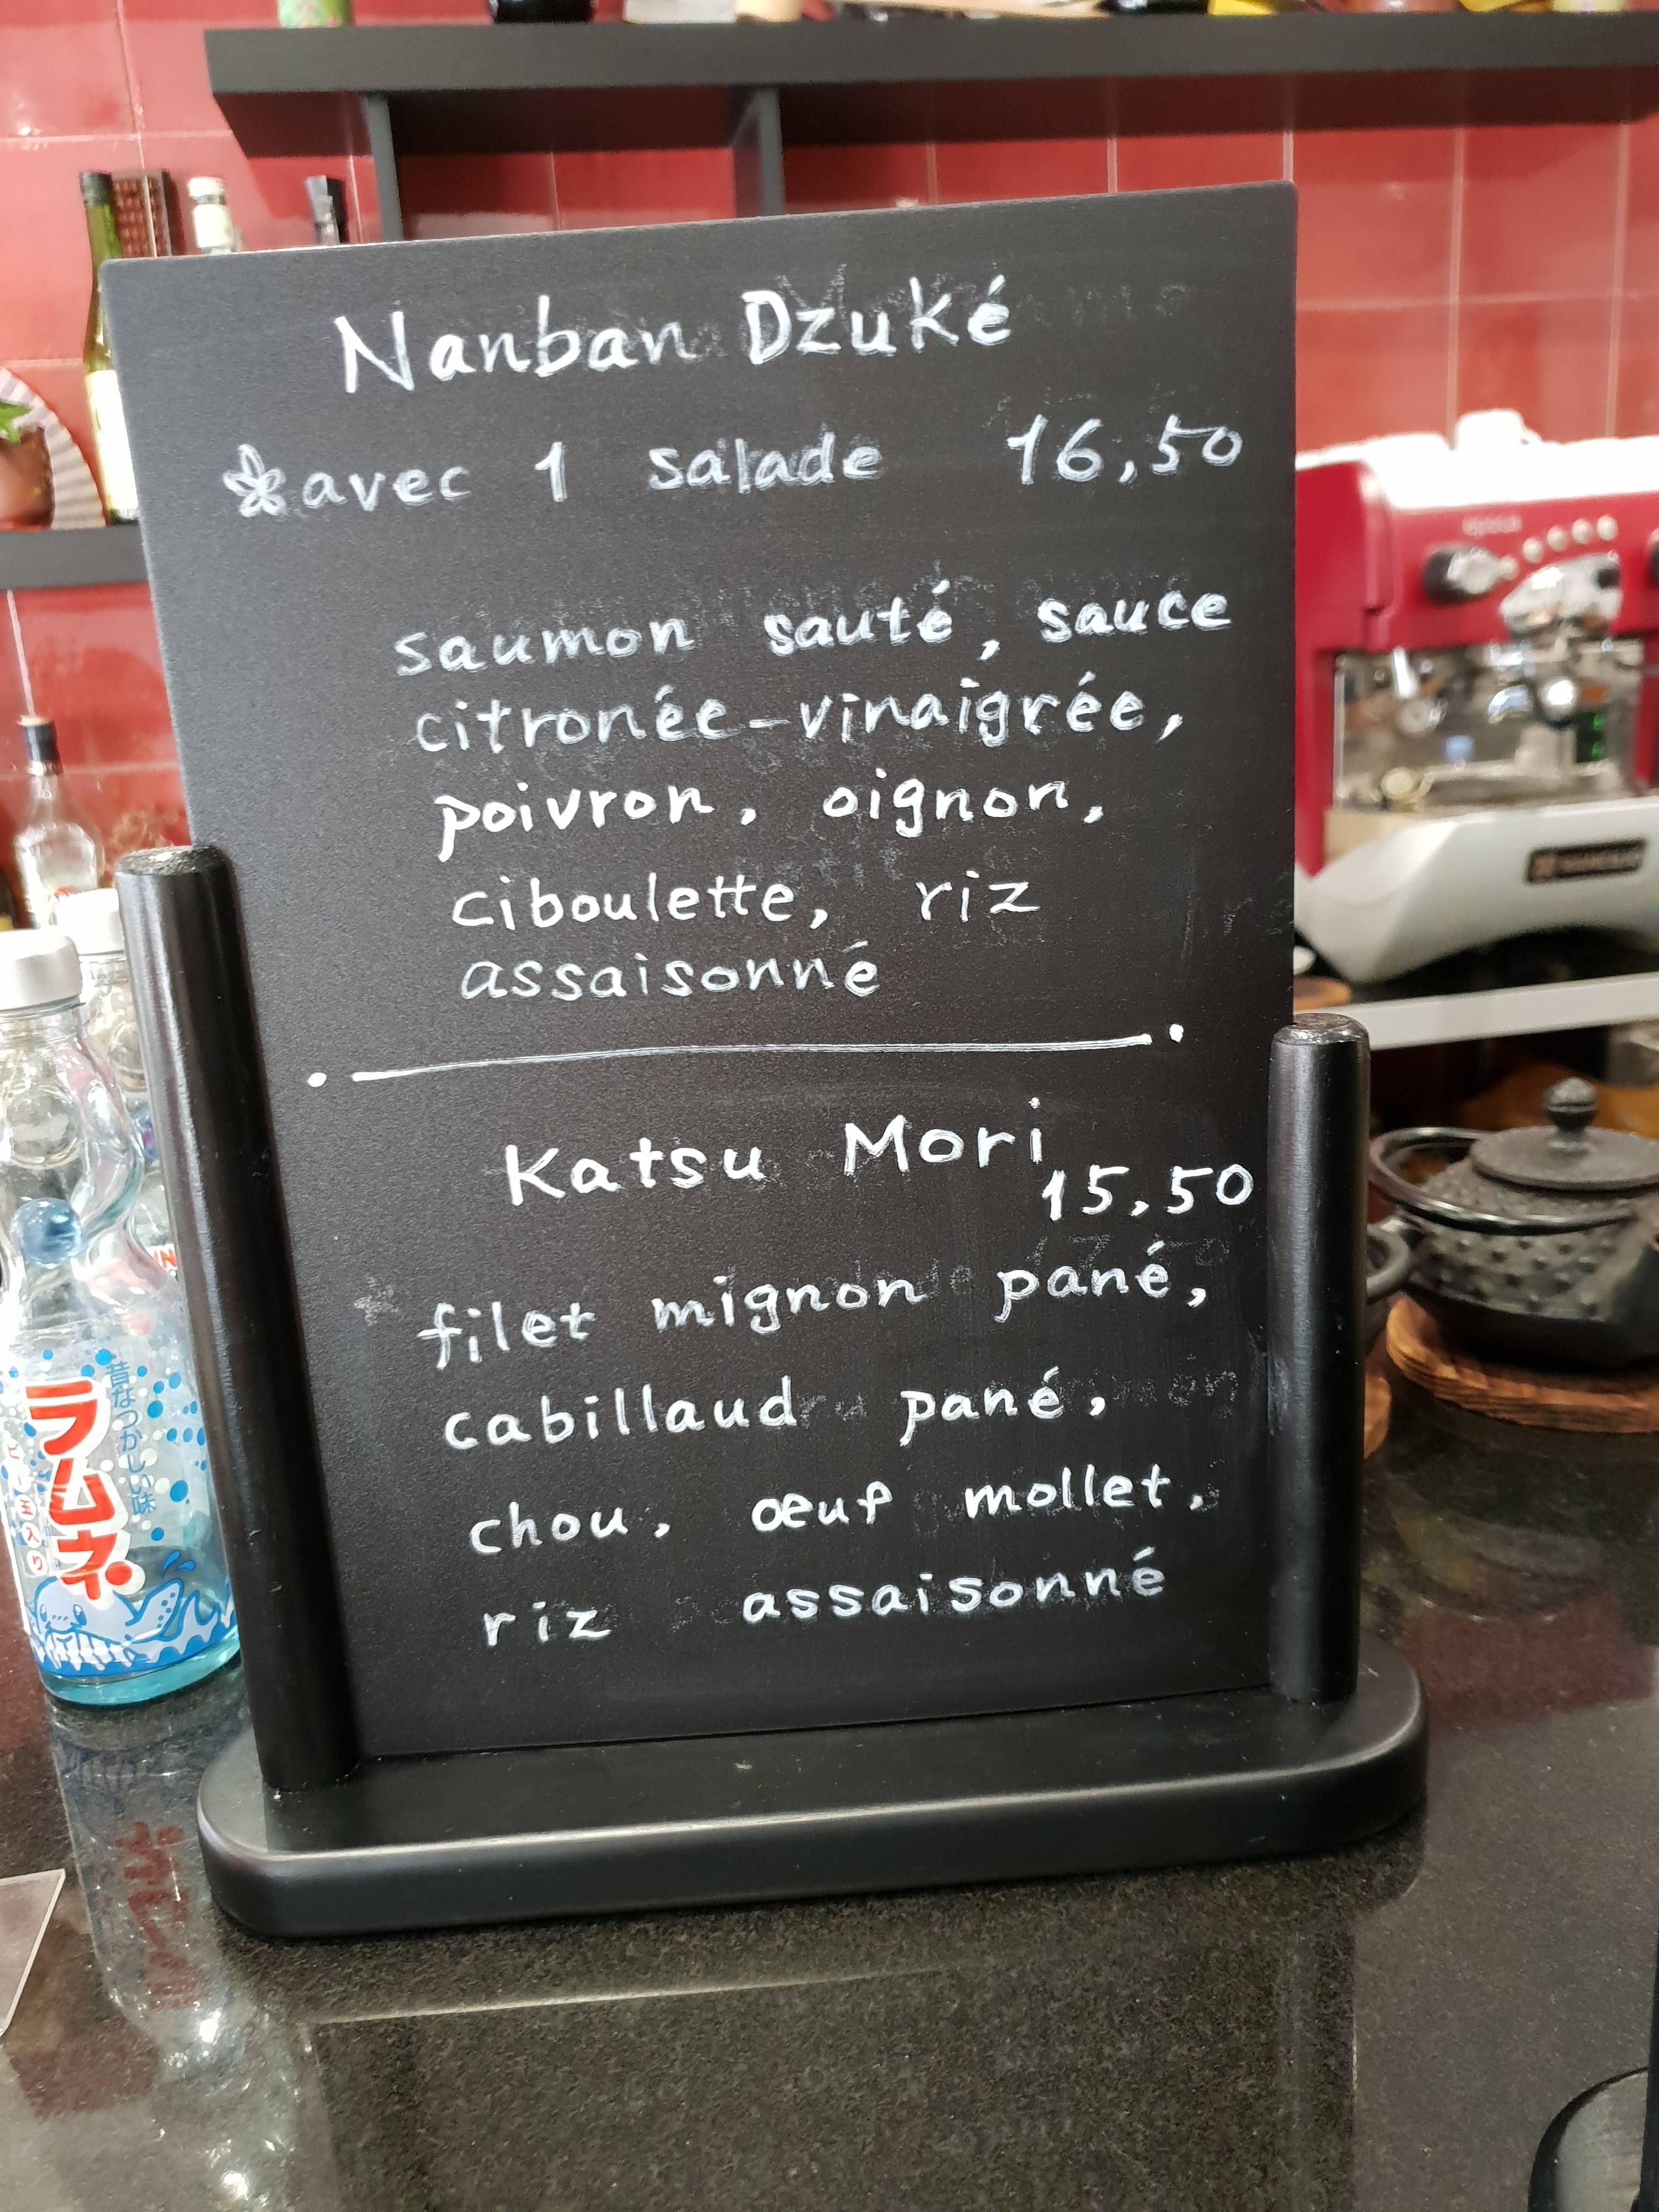 Nanban Dzuké
avec 1 salade 16,50
saumon sauté, sauce
citronée-vinaigrée,
poivron, oignon,
ciboulette, riz
assaisonné
Katsu Mori
15,50
filet mignon pané,
cabillaud pané,
chou, œuf mollet,
riz assaisonné
昔なつかしい味
ラムネ
ビー玉入り